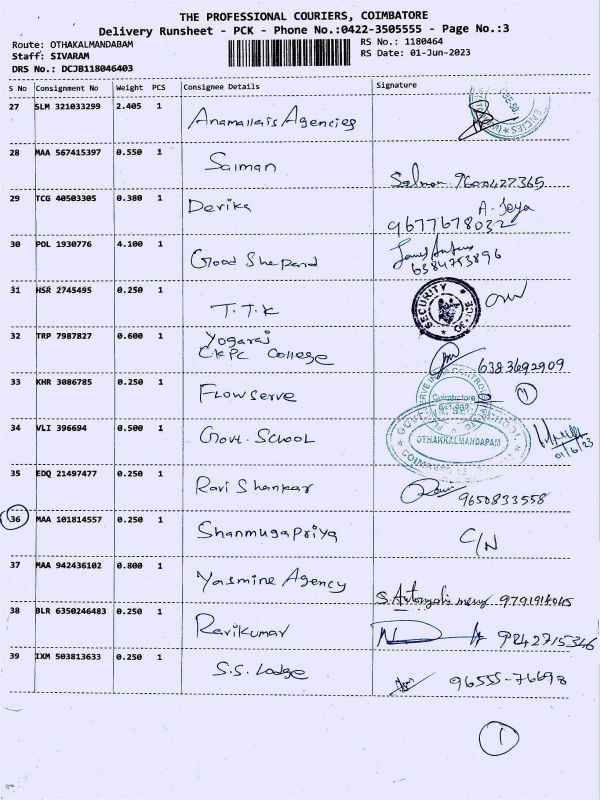 THE PROFESSIONAL COURIERS, COIMBATORE
Delivery Runsheet - PCK - Phone No.:0422-3505555 - Page No.:3
Route: OTHAKALMANDABAM
RS No.: 1180464
Staff: SIVARAM
RS Date: 01-Jun-2023
DRS No.: DCJB118046403
S No Consignment No Weight PCS Consignee Details Signature
27 SLM 321033299 2.405 1 Anamallais Agencies
28 MAA 567415397 0.550 1 Salman
Salman
29 TCG 40503305 0.380 1 Devika A. Jeya
9677678032
30 POL 1930776 4.100 1 Good Shepard
6384753896
31 HSR 2745495 0.250 1 T.T.K
SECURITY
32 TRP 7987827 0.600 1 Yogaraj
CKPC College
6383692909
33 KHR 3086785 0.250 1 Flowserve
Coimbatore
1
34 VLI 396694 0.500 1 Govt. School
OTHAKKALMANDAPAM
01/6/23
35 EDQ 21497477 0.250 1 Ravi Shankar
9650833558
36 MAA 101814557 0.250 1 Shanmugapriya C/N
37 MAA 942436102 0.800 1 Yasmine Agency
38 BLR 6350246483 0.250 1 Ravikumar
9842715346
39 IXM 503813633 0.250 1 S.S. Lodge
96555-76698
1